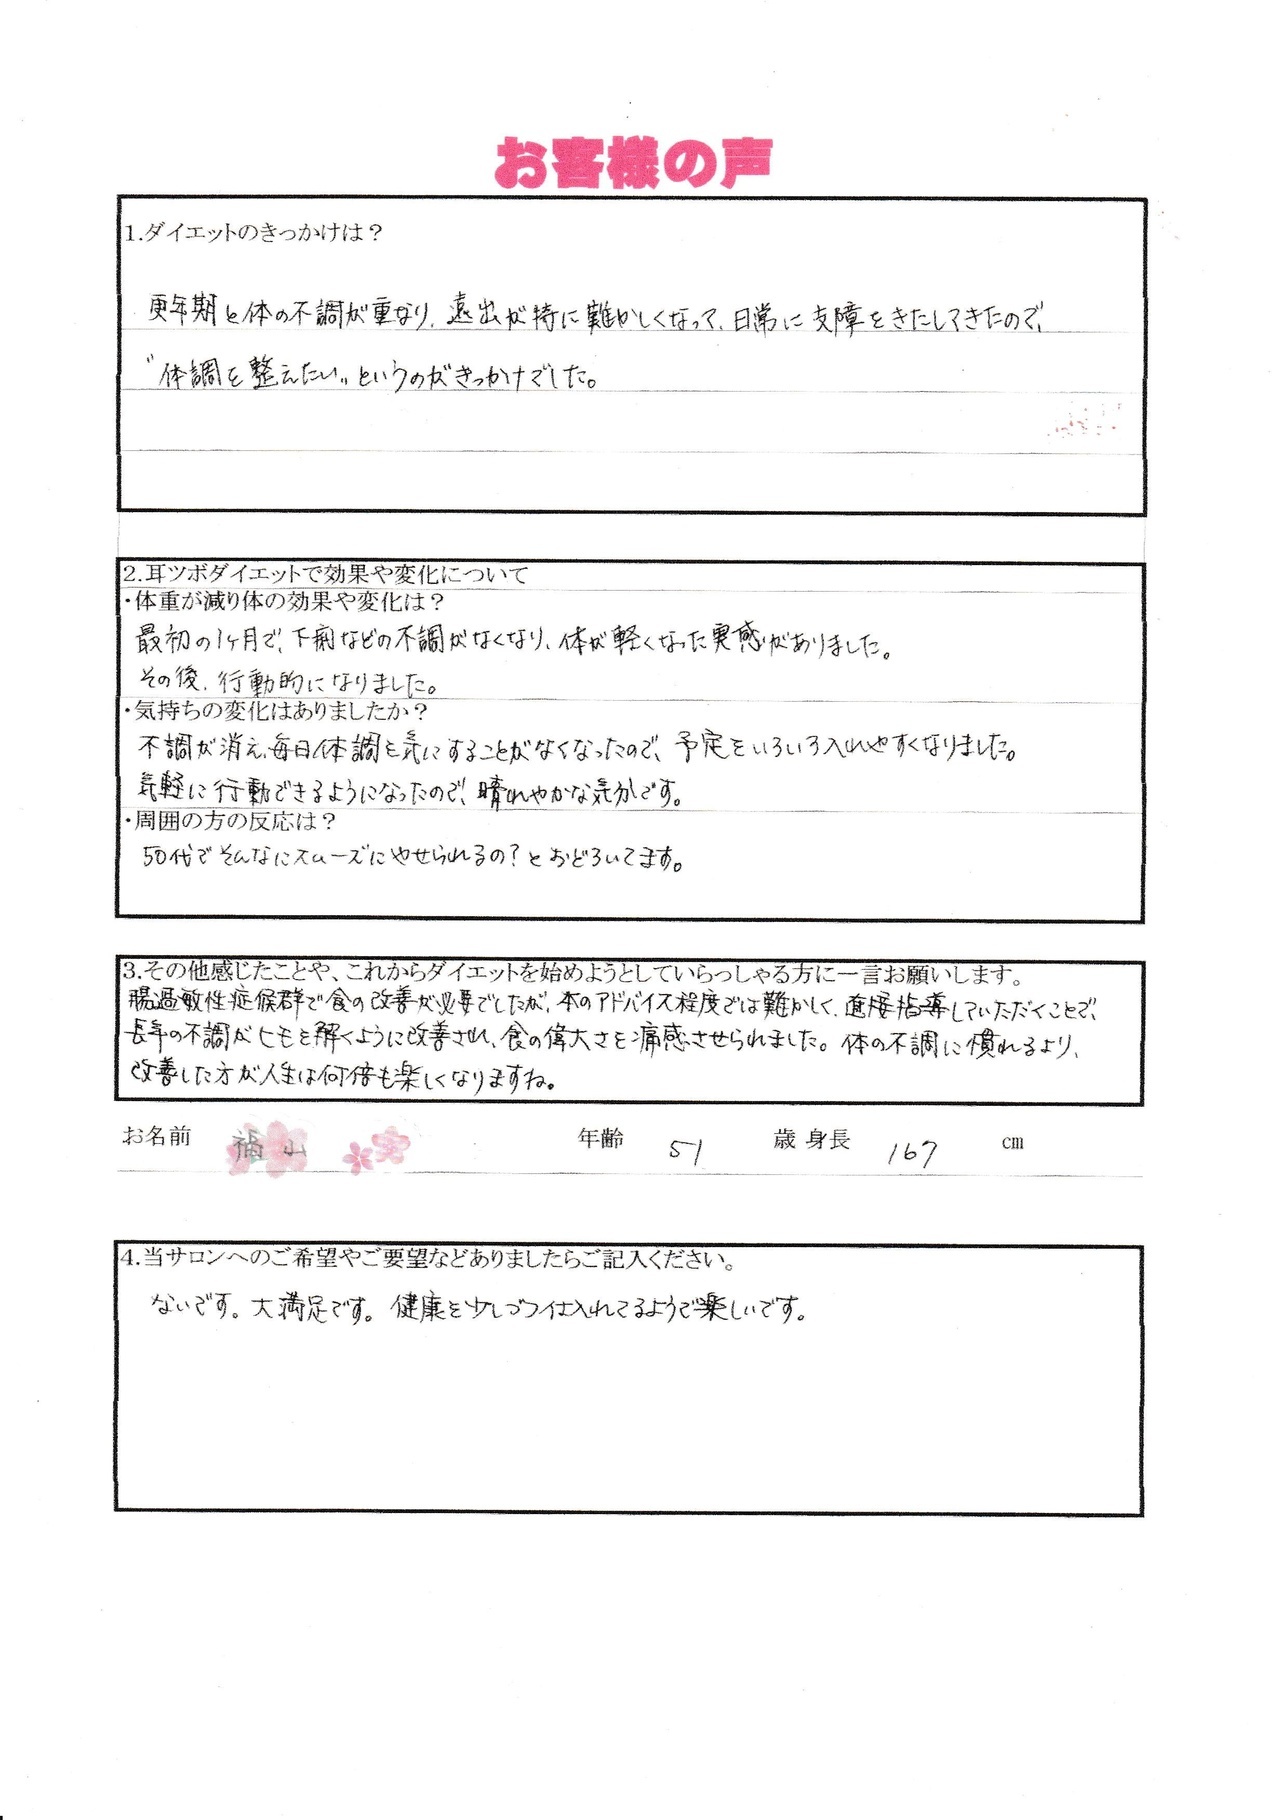 お客様の声
1.ダイエットのきっかけは？
更年期と体の不調が重なり、遠出が特に難かしくなって、日常に支障をきたしてきたので、
“体調を整えたい„というのがきっかけでした。
2.耳ツボダイエットで効果や変化について
・体重が減り体の効果や変化は？
最初の1ヶ月で、下痢などの不調がなくなり、体が軽くなった実感がありました。
その後、行動的になりました。
・気持ちの変化はありましたか？
不調が消え、毎日体調を気にすることがなくなったので、予定をいろいろ入れやすくなりました。
気軽に行動できるようになったので、晴れやかな気分です。
・周囲の方の反応は？
50代でそんなにスムーズにやせられるの？とおどろいてます。
3.その他感じたことや、これからダイエットを始めようとしていらっしゃる方に一言お願いします。
腸過敏性症候群で食の改善が必要でしたが、本のアドバイス程度では難かしく、直接指導していただくことで、
長年の不調がヒモを解くように改善され、食の偉大さを痛感させられました。体の不調に慣れるより、
改善した方が人生は何倍も楽しくなりますね。
お名前 福山 年齢 51 歳 身長 167 cm
4.当サロンへのご希望やご要望などありましたらご記入ください。
ないです。大満足です。健康を少しづつ仕入れてるようで楽しいです。